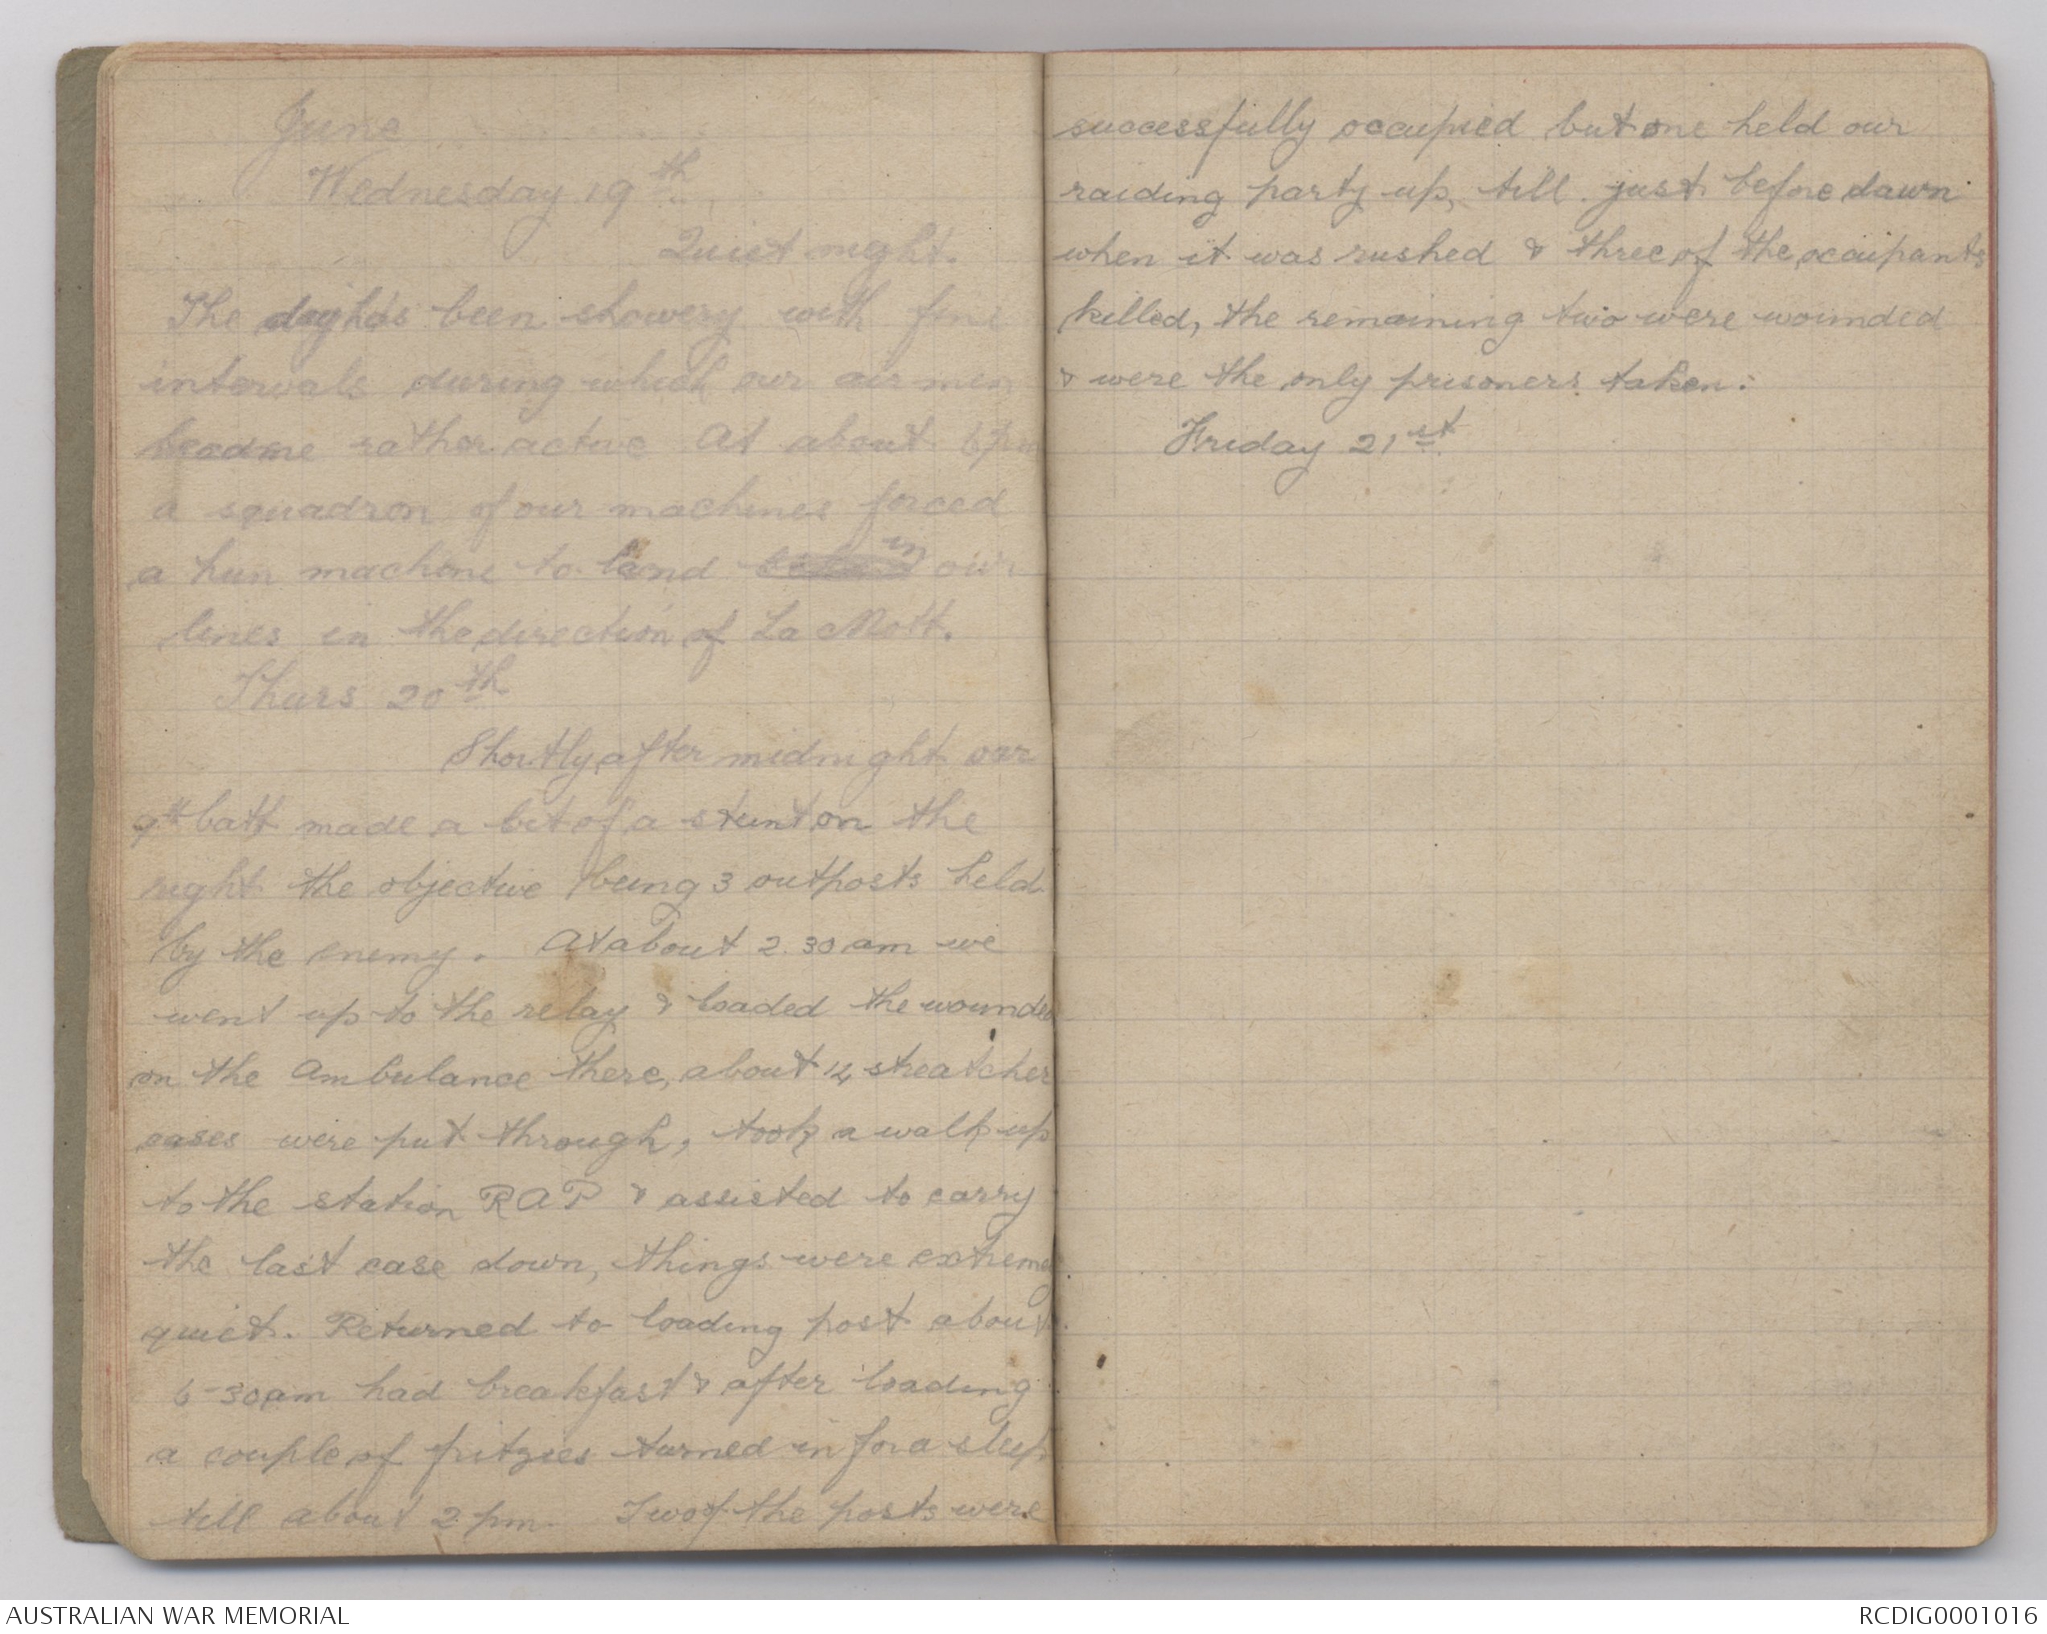 June
Wednesday 19th
Quiet night.
The day has been showery with fine
intervals during which our air men
became rather active At about 6 pm
a squadron of our machines forced
a hun machine to land in our
lines in the direction of La Mott.
Thurs 20th
Shortly after midnight our
9th batt made a bit of a stunt on the
right the objective being 3 outposts held
by the enemy. At about 2.30 am we
went up to the relay & loaded the wounded
on the Ambulance there, about 14 streatcher
cases were put through, took a walk up
to the station RAP & assisted to carry
the last case down, things were extremely
quiet. Returned to loading post about
6-30am had breakfast & after loading
a couple of fritzies turned in for a sleep
till about 2 pm. Two of the posts were
successfully occupied but one held our
raiding party up, till just before dawn
when it was rushed & three of the occupants
killed, the remaining two were wounded
& were the only prisoners taken.
Friday 21st
AUSTRALIAN WAR MEMORIAL
RCDIG0001016